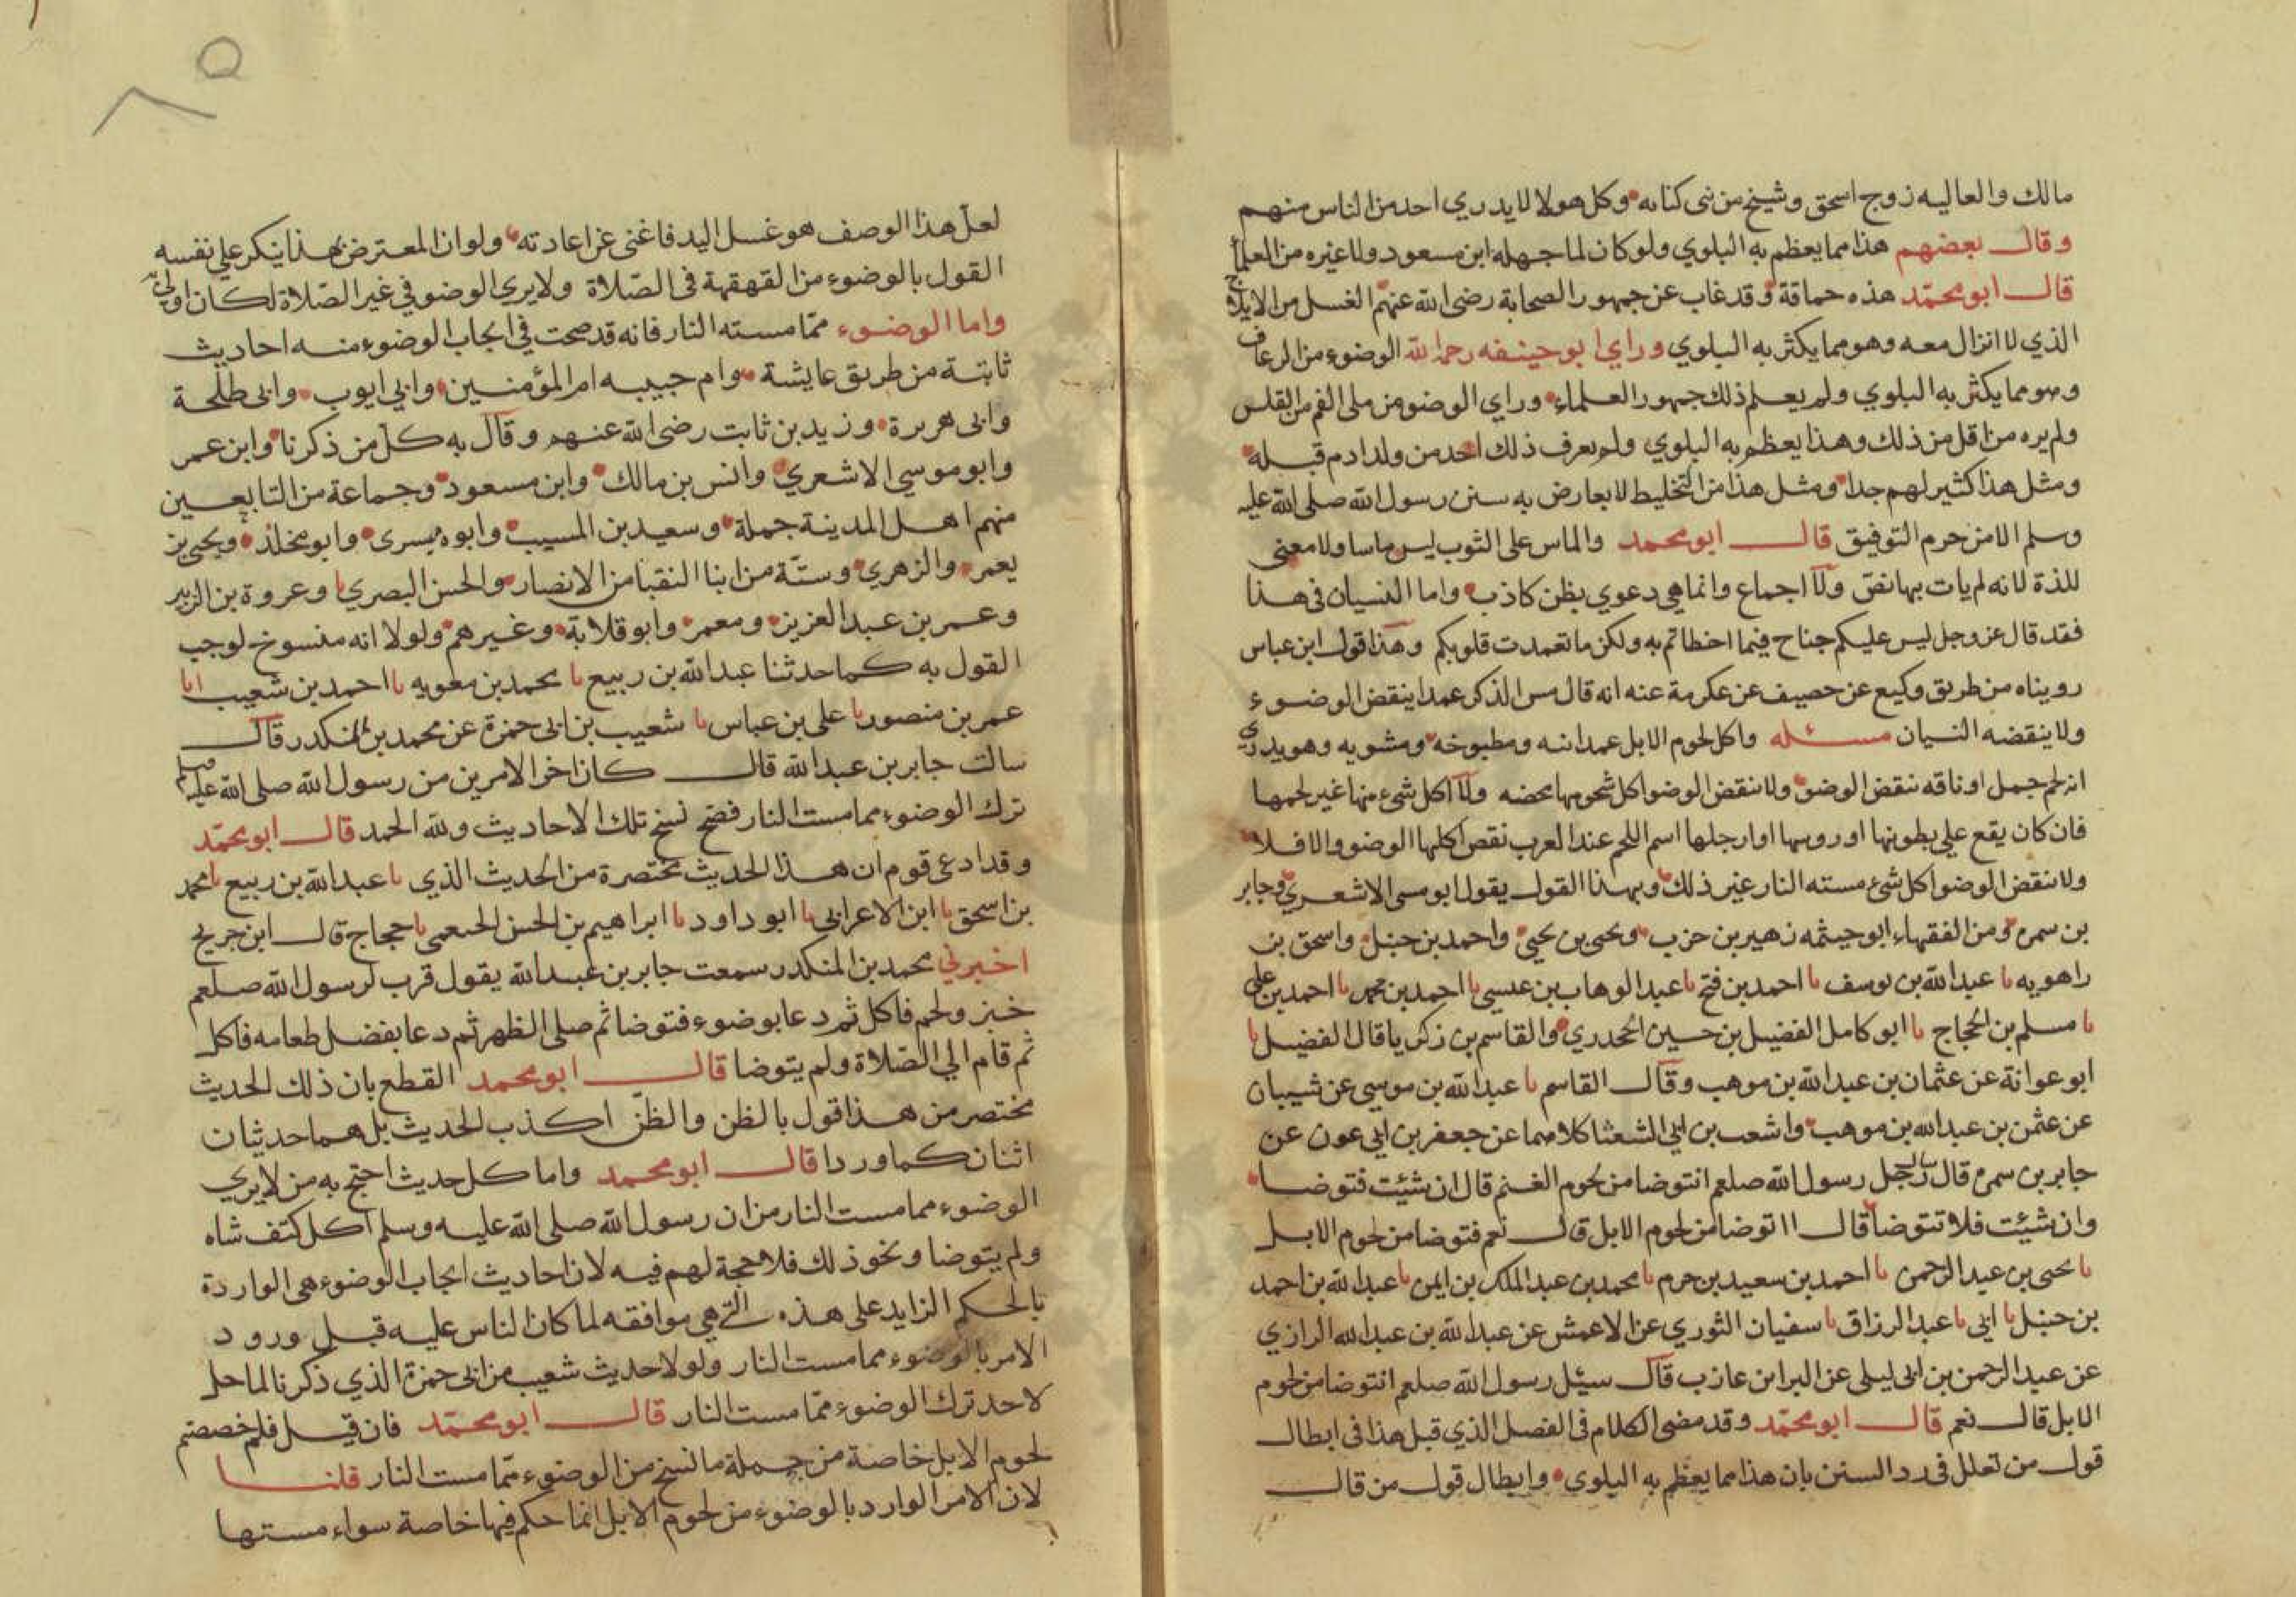 مالك والعاليه زوج اسحق وشيخ من بنى كنانه وكل هولا لا يدري احد من الناس منهم
وقال بعضهم هذا مما يعظم به البلوي ولو كان لما جهله ابن مسعود ولا غيره من العلما
قال ابو محمّد هذه حماقة وقد غاب عن جمهور الصحابة رضى الله عنهم الغسل من الايلاج
الذي لا انزال معه وهو مما يكثر به البلوي وراي ابو حنيفه رحمه الله الوضوء من الرعاف
وهو مما يكثر به البلوي ولم يعلم ذلك جمهور العلماء وراي الوضو من ملى الفم من القلس
ولم يره من اقل من ذلك وهذا يعظم به البلوي ولم يعرف ذلك احد من ولد ادم قبله
ومثل هذا كثير لهم جدا ومثل هذا من التخليط لا يعارض به سنن رسول الله صلى الله عليه
وسلم الا من حرم التوفيق قال ابو محمد والماس على الثوب ليس ماسا ولا معنى
للذة لانه لم يات بها نص ولا اجماع وانما هي دعوي بظن كاذب واما النسيان فى هذا
فقد قال عز وجل ليس عليكم جناح فيما اخطاتم به ولكن ما تعمدت قلوبكم وهذا قول ابن عباس
رويناه من طريق وكيع عن خصيف عن عكرمة عنه انه قال مس الذكر عمدا ينقض الوضوء
ولا ينقضه النسيان مسئله واكل لحوم الابل عمدا نيه ومطبوخه ومشويه وهو يدري
انه لحم جمل او ناقه ننقض الوضو ولا ننقض الوضو اكل شحومها محضه ولا اكل شىء منها غير لحمها
فان كان يقع علي بطونها او روسها او ارجلها اسم اللحم عند العرب نقض اكلها الوضو والا فلا
ولا ننقض الوضو اكل شىء مسته النار غير ذلك وبهذا القول يقول ابو موسى الاشعري وجابر
بن سمره ومن الفقهاء ابو خيثمه زهير بن حرب ويحيى بن يحيى واحمد بن حنبل واسحق بن
راهويه نا عبد الله بن يوسف نا احمد بن فتح نا عبد الوهاب بن عيسى نا احمد بن محمد نا احمد بن علي
نا مسلم بن الحجاج نا ابو كامل الفضيل بن حسين الجحدري والقاسم بن زكريا قال الفضيل نا
ابو عوانة عن عثمان بن عبد الله بن موهب وقال القاسم نا عبد الله بن موسي عن شيبان
عن عثمن بن عبد الله بن موهب واشعب بن ابي الشعثا كلاهما عن جعفر بن ابي عون عن
جابر بن سمره قال سال رجل رسول الله صلعم انتوضا من لحوم الغنم قال ان شئت فتوضا
وان شئت فلا تتوضا قال ااتوضا من لحوم الابل قال نعم فتوضا من لحوم الابل
نا يحيى بن عبد الرحمن نا احمد بن سعيد بن حزم نا محمد بن عبد الملك بن ايمن نا عبد الله بن احمد
بن حنبل نا ابي نا عبد الرزاق نا سفيان الثوري عن الاعمش عن عبد الله بن عبد الله الرازي
عن عبد الرحمن بن ابى ليلى عن البرا بن عازب قال سئل رسول الله صلعم انتوضا من لحوم
الابل قال نعم قال ابو محمّد وقد مضى الكلام فى الفصل الذي قبل هذا فى ابطال
قول من تعلل فى رد السنن بان هذا مما يعظم به البلوي وابطال قول من قال
لعل هذا الوصف هو غسل اليد فاغنى عن اعادته ولو ان المعترض بهذا ينكر علي نفسه
القول بالوضوء من القهقهة فى الصّلاة ولا يري الوضو في غير الصّلاة لكان اولي
واما الوضوء ممّا مسته النار فانه قد صحت في ايجاب الوضوء منه احاديث
ثابتة من طريق عايشة وام حبيبه ام المؤمنين وابي ايوب وابى طلحة
وابى هريرة وزيد بن ثابت رضى الله عنهم وقال به كل من ذكرنا وابن عمر
وابو موسي الاشعري وانس بن مالك وابن مسعود وجماعة من التابعين
منهم اهل المدينة جملة وسعيد بن المسيب وابو ميسرى وابو مخلذ ويحيى بن
يعمر والزهري وستّة من ابنا النقبا من الانصار والحسن البصري نا وعروة بن الزبير
وعمر بن عبد العزيز ومعمر وابو قلابة وغيرهم ولولا انه منسوخ لوجب
القول به كما حدثنا عبد الله بن ربيع نا محمد بن معويه نا احمد بن شعيب انا
عمر بن منصور نا على بن عباس نا شعيب بن ابى حمزة عن محمد بن المنكدر قال
سالت جابر بن عبد الله قال كان اخر الامرين من رسول الله صلى الله عليه وسلم
ترك الوضوء مما مست النار فصح نسخ تلك الاحاديث ولله الحمد قال ابو محمّد
وقد ادعى قوم ان هذا الحديث مختصرة من الحديث الذي نا عبد الله بن ربيع نا محمد
بن اسحق نا ابن الاعرابي نا ابو داود نا ابراهيم بن الحسن الخثعمى نا حجاج قال ابن جريج
اخبرني محمد بن المنكدر سمعت جابر بن عبد الله يقول قرب لرسول الله صلعم
خبز ولحم فاكل ثم دعا بوضوء فتوضا ثم صلى الظهر ثم دعا بفضل طعامه فاكل
ثم قام الي الصّلاة ولم يتوضا قال ابو محمد القطع بان ذلك الحديث
مختصر من هذا قول بالظن والظنّ اكذب الحديث بل هما حديثان
اثنان كما وردا قال ابو محمد واما كل حديث احتج به من لا يري
الوضوء مما مست النار من ان رسول الله صلى الله عليه وسلم اكل كتف شاه
ولم يتوضا ونحو ذلك فلا حجة لهم فيه لان احاديث ايجاب الوضوء هى الواردة
بالحكم الزايد على هذه التي هي موافقه لما كان الناس عليه قبل ورود
الامر بالوضوء مما مست النار ولولا حديث شعيب من ابى حمزة الذي ذكرنا لما حل
لاحد ترك الوضوء ممّا مست النار قال ابو محمّد فان قيل فلم خصصتم
لحوم الابل خاصة من جملة ما نسخ من الوضوء ممّا مست النار قلنا
لان الامر الوارد بالوضوء من لحوم الابل انما حكم فيها خاصة سواء مستها